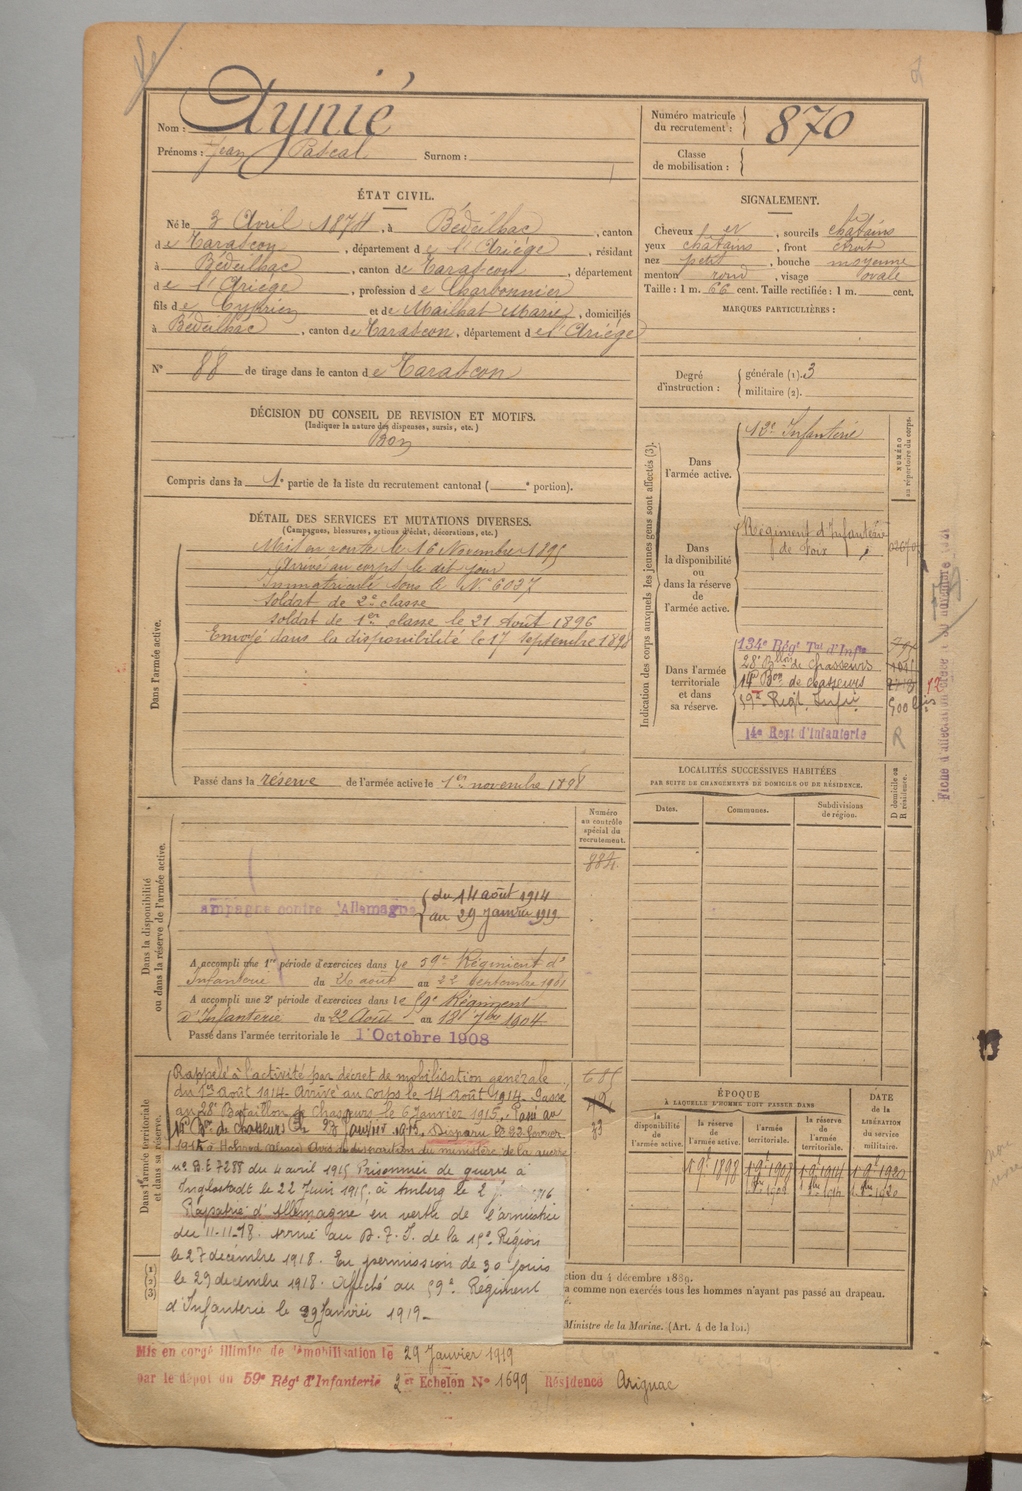 Nom : Aynié
Prénoms : Jean Pascal Surnom :
Numéro matricule
du recrutement : 870
Classe
de mobilisation :
ÉTAT CIVIL.
Né le 3 Avril 1874, à Bédeilhac, canton
de Tarascon, département de l'Ariége, résidant
à Bédeilhac, canton de Tarascon, département
de l'Ariége, profession de Charbonnier
fils de Cyprien et de Mailhat Marie, domiciliés
à Bédeilhac, canton de Tarascon, département de l'Ariége
N° 88 de tirage dans le canton de Tarascon
SIGNALEMENT.
Cheveux et, sourcils chatains
yeux chatains, front étroit
nez petit, bouche moyenne
menton rond, visage ovale
Taille : 1 m. 66 cent. Taille rectifiée : 1 m. cent.
MARQUES PARTICULIÈRES :
Degré
d'instruction :
générale (1). 3
militaire (2).
DÉCISION DU CONSEIL DE REVISION ET MOTIFS.
(Indiquer la nature des dispenses, sursis, etc.)
Bon
Compris dans la 1e partie de la liste du recrutement cantonal ( e portion).
DÉTAIL DES SERVICES ET MUTATIONS DIVERSES.
(Campagnes, blessures, actions d'éclat, décorations, etc.)
Dans l'armée active.
Mis en route le 16 Novembre 1895
Arrivé au corps le dit jour
Immatriculé sous le N° 6037
soldat de 2e classe
soldat de 1er classe le 21 août 1896
Envoyé dans la disponibilité le 17 septembre 1898
Passé dans la réserve de l'armée active le 1er novembre 1898
Indication des corps auxquels les jeunes gens sont affectés (3).
NUMÉRO
au répertoire du corps.
Dans
l'armée active.
12e Infanterie
Dans
la disponibilité
ou
dans la réserve
de
l'armée active.
Régiment d'Infanterie
de Foix
Dans l'armée
territoriale
et dans
sa réserve.
134e Régt Tal d'Infie
28e Bllon de Chasseurs
14e Bon de chasseurs
59e Regt Infie
500 bis
14e Regt d'Infanterie
R
12
LOCALITÉS SUCCESSIVES HABITÉES
PAR SUITE DE CHANGEMENTS DE DOMICILE OU DE RÉSIDENCE.
Dates.
Communes.
Subdivisions
de région.
D domicile ou
R résidence.
Dans la disponibilité
ou dans la réserve de l'armée active.
Numéro
au contrôle
spécial du
recrutement.
884
ampagne contre l'Allemagne
du 14 août 1914
au 29 Janvier 1919
A accompli une 1re période d'exercices dans le 59e Régiment d'
Infanterie du 26 août au 22 Septembre 1901
A accompli une 2e période d'exercices dans le 59e Régiment
d'Infanterie du 22 Août au 18 7bre 1904
Passé dans l'armée territoriale le 1 Octobre 1908
Dans l'armée territoriale
et dans sa réserve.
Rappelé à l'activité par décret de mobilisation générale
du 1er Août 1914. Arrivé au corps le 14 août 1914. Passé
au 28e Bataillon de Chasseurs le 6 Janvier 1915. Passé au
14e Bon de chasseurs le 23 Janvier 1915. Disparu le 22 février
1915 à Avis de disparition du ministère de la guerre
no B.E 7288 du 4 avril 1915 Prisonnier de guerre à
Inglostadt le 22 Juin 1915. à Amberg le 2 1916
Rapatrié d'Allemagne en vertu de l'armistice
du 11-11-18. Arrivé au B.F.I. de la 15e Région
le 27 décembre 1918. En permission de 30 jours
le 29 decembre 1918. Affecté au 59e Régiment
d'Infanterie le 29 Janvier 1919
ÉPOQUE
À LAQUELLE L'HOMME DOIT PASSER DANS
DATE
de la
LIBÉRATION
du service
militaire.
la
disponibilité
de
l'armée active.
la réserve
de
l'armée active.
l'armée
territoriale.
la réserve
de
l'armée
territoriale.
1 9e 1898
ction du 4 décembre 1889.
a comme non exercés tous les hommes n'ayant pas passé au drapeau.
Ministre de la Marine. (Art. 4 de la loi.)
Mis en congé illimité de démobilisation le 29 Janvier 1919
par le dépôt du 59e Régt d'Infanterie 2er Echelon N° 1699 Résidence Arignac